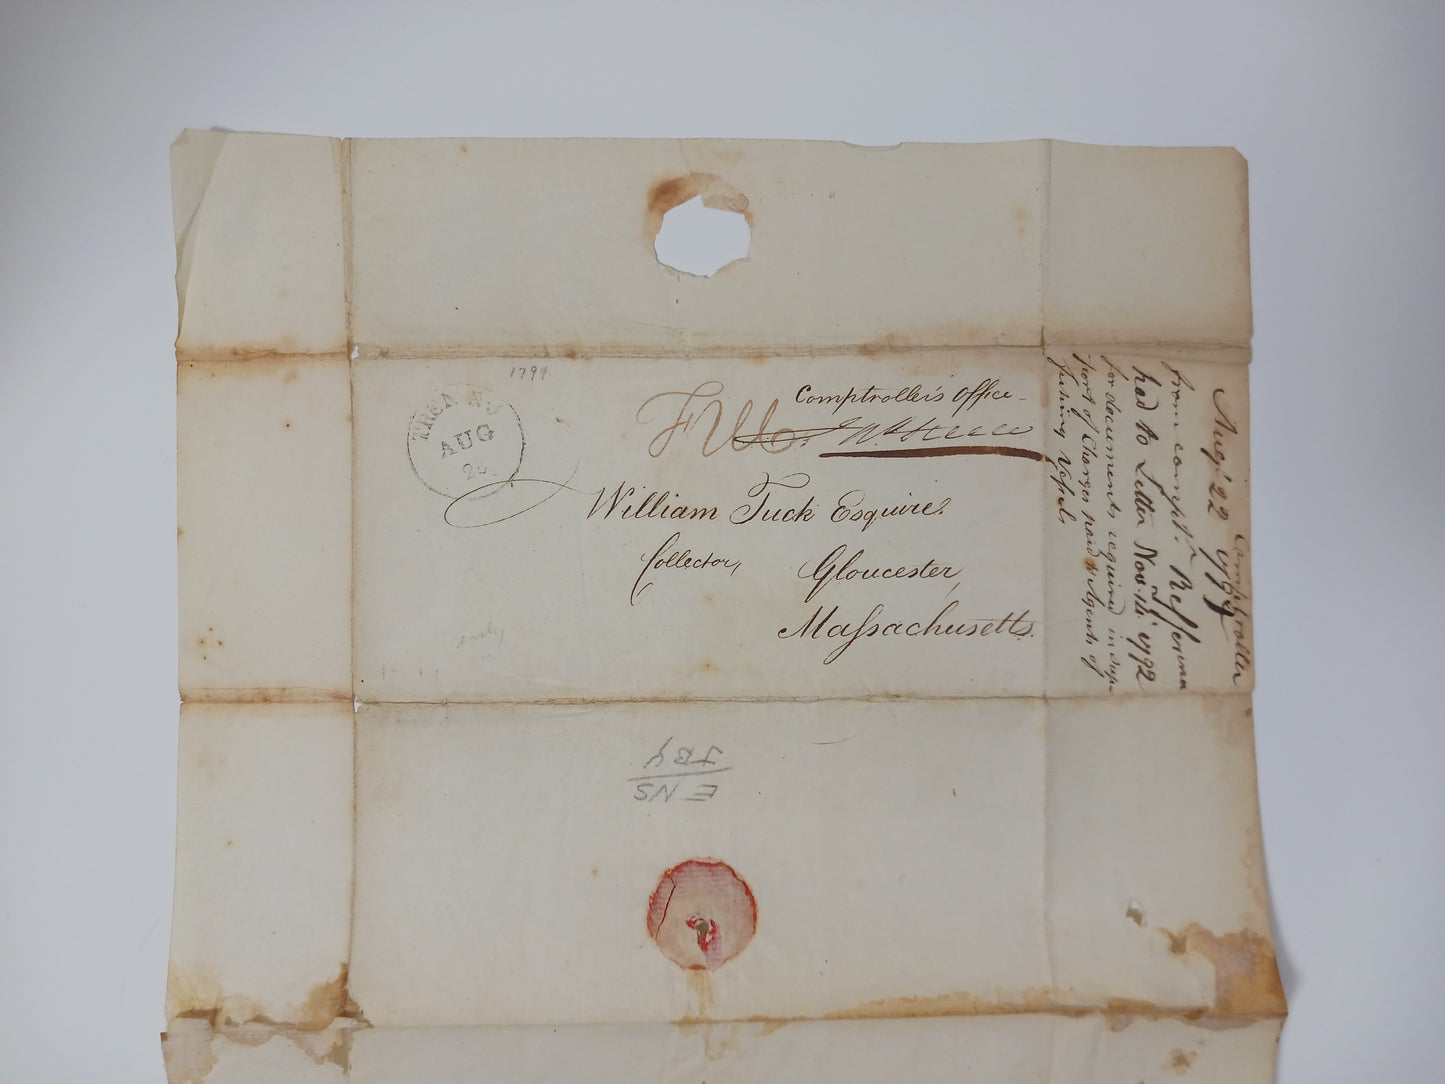 1799
TREN N.J
AUG
28
Comptroller's Office
Free Jno Steele
William Tuck Esquire.
Collector, Gloucester,
Maſsachusetts.
early
Comptroller
Aug. 22 1799
from compt. Refferenc
had to Letter Nov. 14 1792
for documents required in sup-
port of Charges paid to Agents of
fishing Veſsels
JBY
E NS